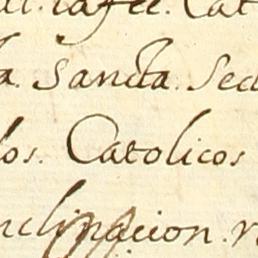 la fee. Cat
la Sancta. Sed
los. Catolicos
nclinacion. r